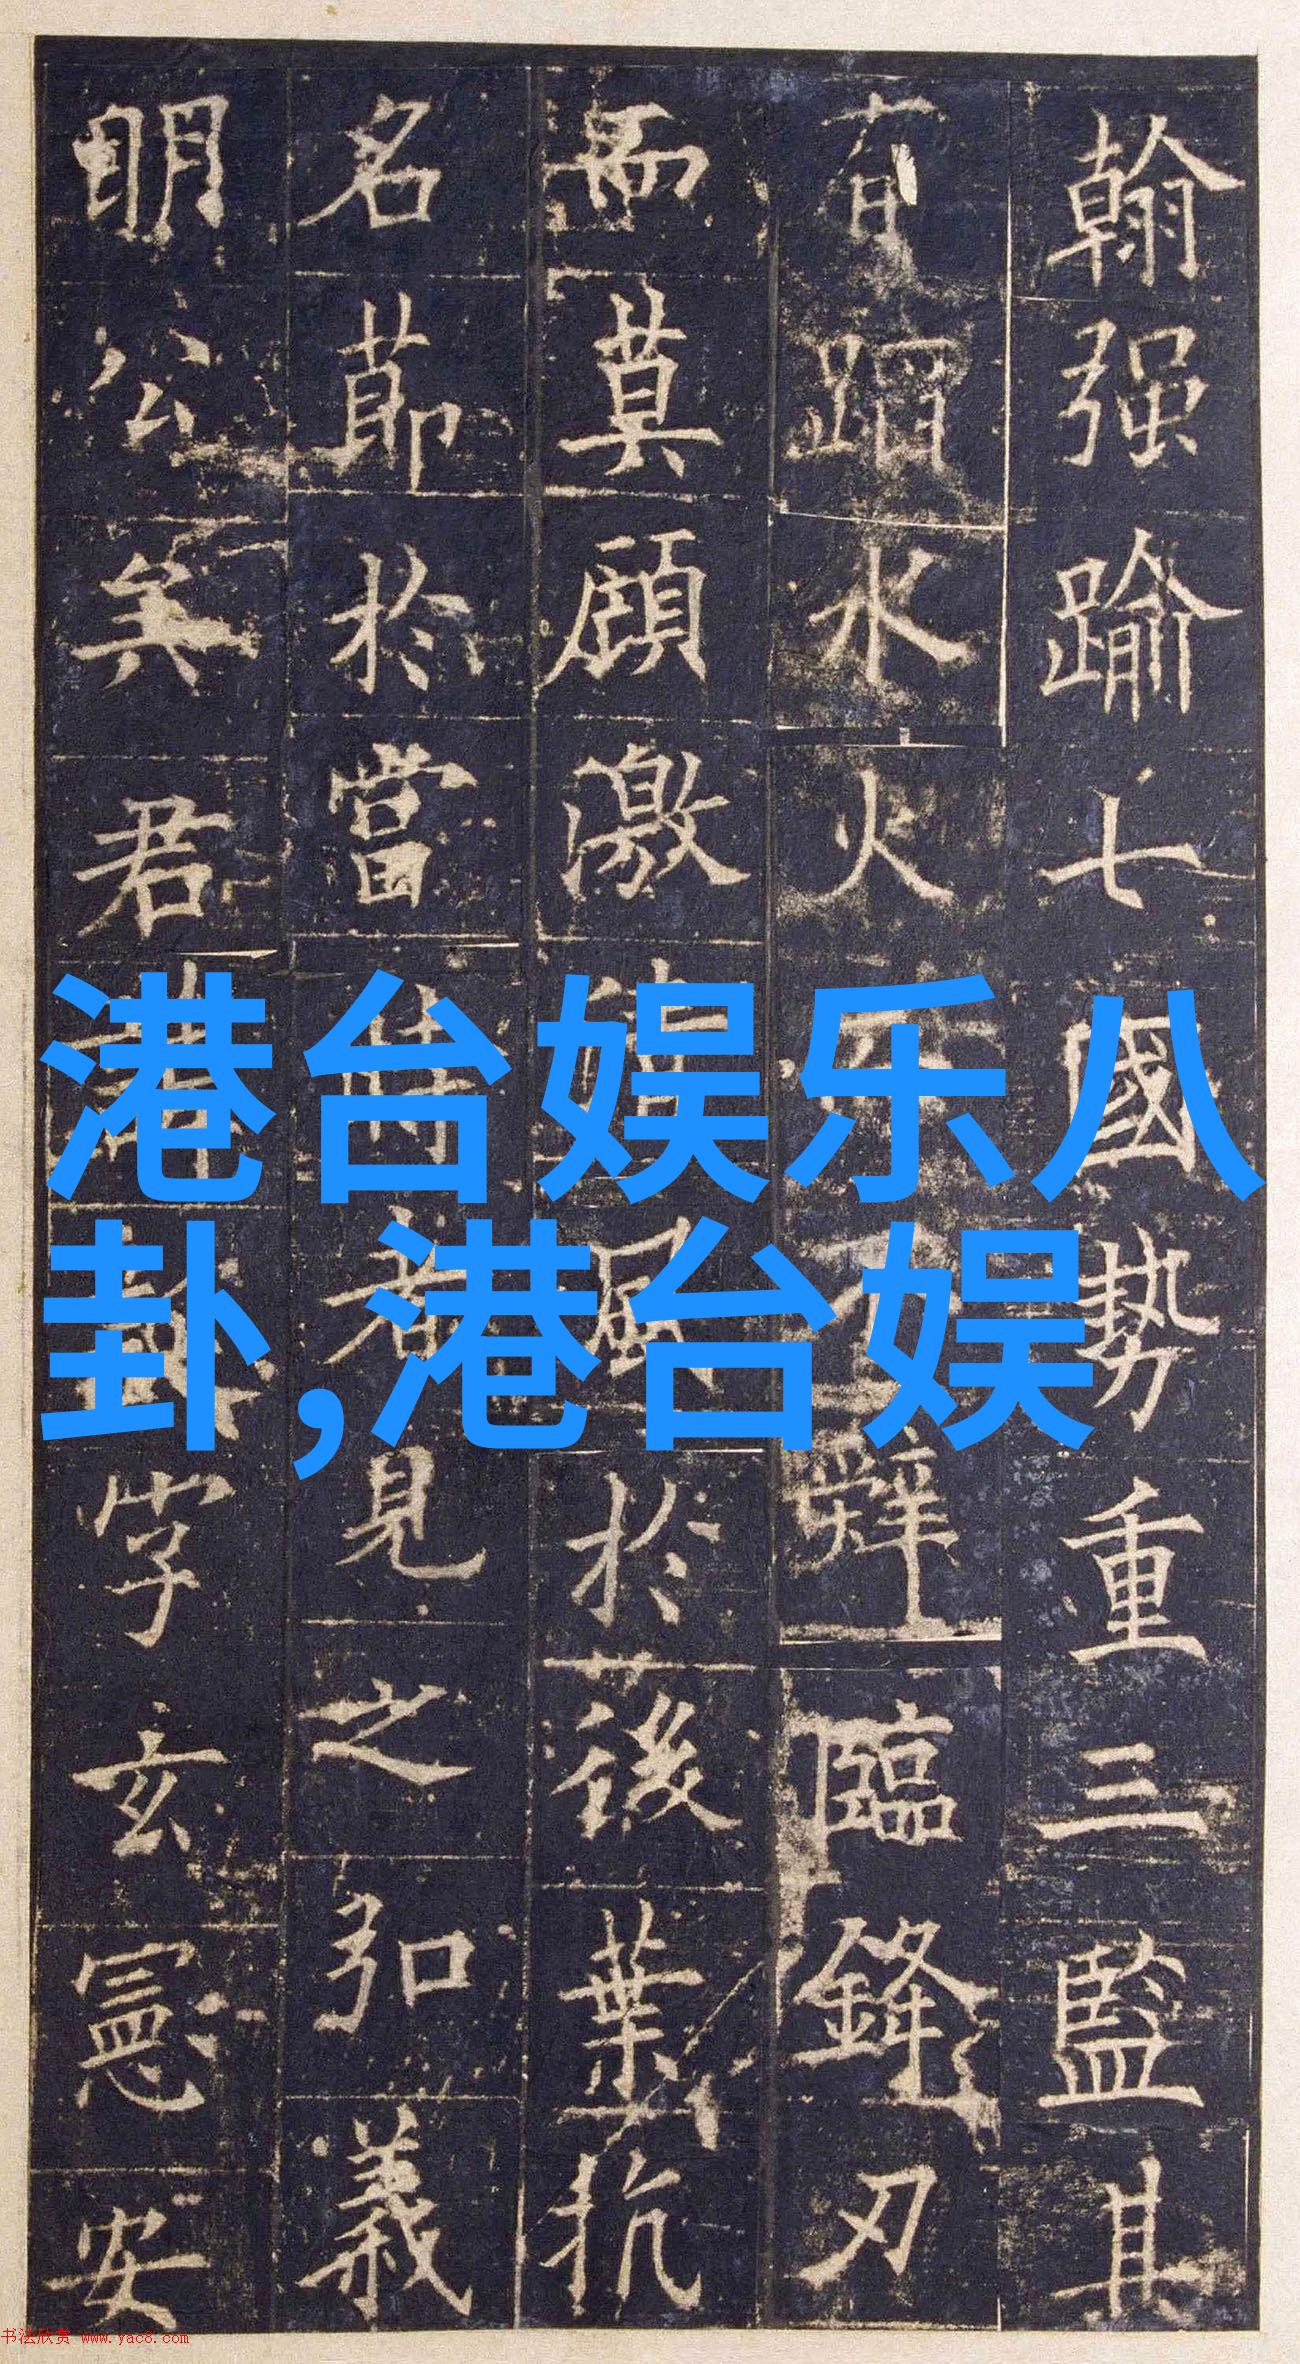 翰强踰七國勢重三監其
有蹈水火而不辭臨鋒刃
而莫顧激清風於後葉抗
名節於當時者見之弘義
明公矣君諱字玄憲安
港台娱乐八
卦,港台娱
书法欣赏 www.yac8.com